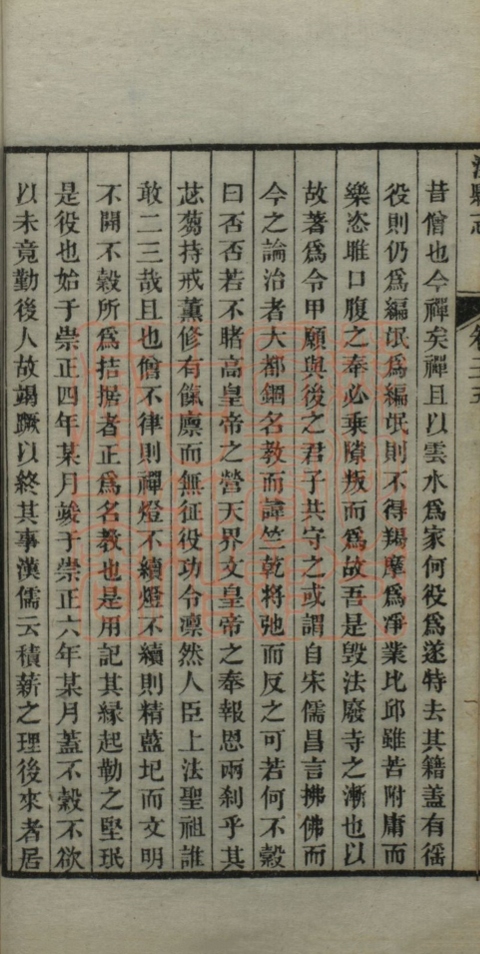 昔僧也今禪矣禪且以雲水爲家何役爲遂特去其籍蓋有徭
役則仍爲編氓爲編氓則不得羯摩爲淨業比邱雖若附庸而
樂恣睢口腹之奉必乘隙叛而爲故吾是毀法廢寺之漸也以
故著爲令甲願與後之君子共守之或謂自宋儒昌言拂佛而
今之論治者大都錮名教而諱竺乾將弛而反之可若何不穀
曰否否若不睹高皇帝之營天界文皇帝之奉報恩兩刹乎其
苾蒭持戒薰修有餼廩而無征役功令凛然人臣上法聖祖誰
敢二三哉且也僧不律則禪燈不續燈不續則精藍圯而文明
不開不穀所爲拮据者正爲名教也是用記其緣起勒之堅珉
是役也始于崇正四年某月竣于崇正六年某月蓋不穀不欲
以未竟勤後人故竭蹶以終其事漢儒云積薪之理後來者居